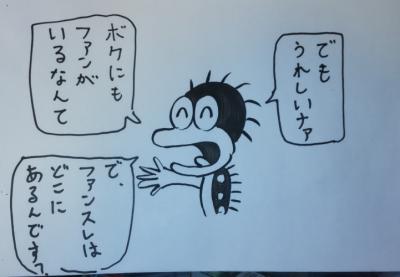 でも
うれしいナァ
ボクにも
ファンが
いるなんて
で、
ファンスレは
どこに
あるんです?